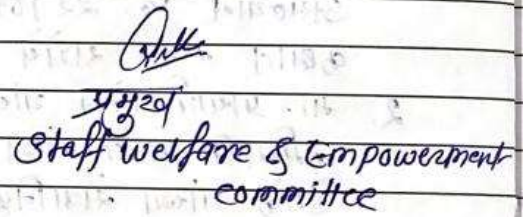 प्रमुख
Staff welfare & Empowerment
committee